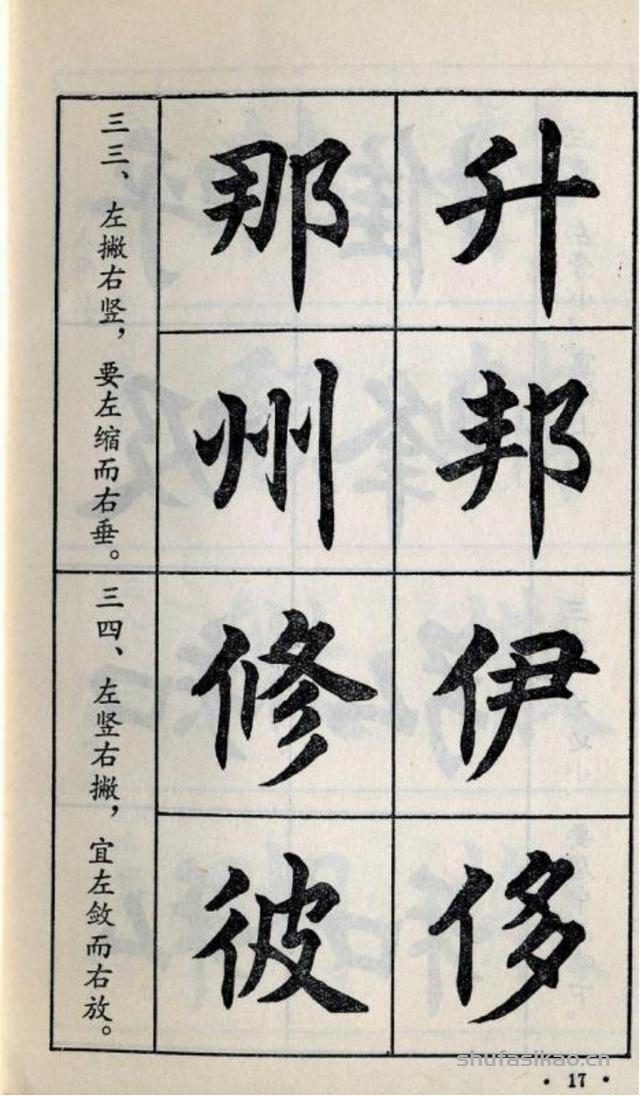 升那
邦州
三三、左撇右竖，要左缩而右垂。
伊修
侈彼
三四、左竖右撇，宜左敛而右放。
shufasikao.cn
·17·